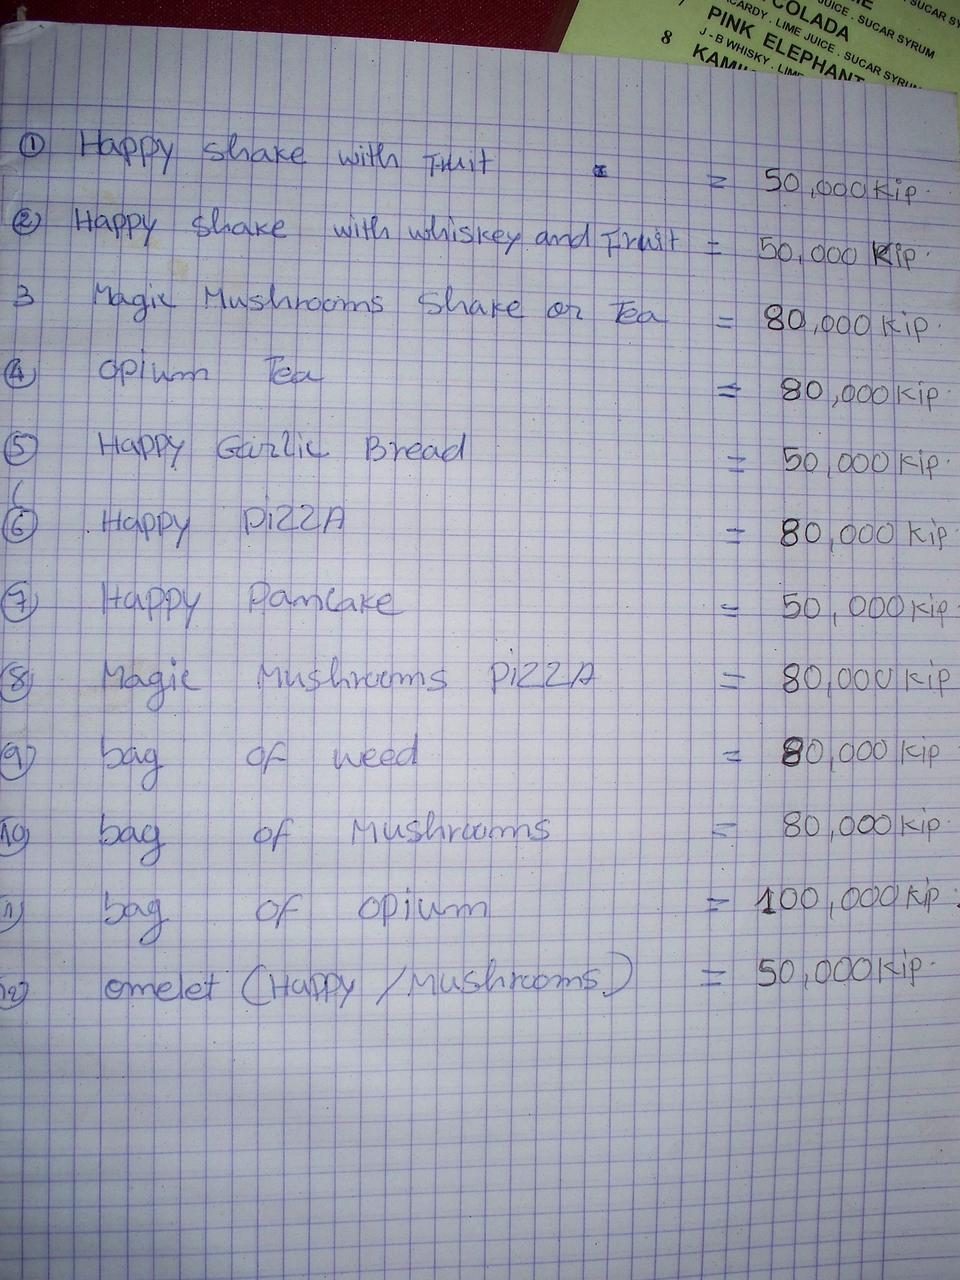 COLADA
JUICE . SUCAR SY
CARDY . LIME JUICE . SUCAR SYRUM
PINK ELEPHANT
J - B WHISKY . LIME JUICE . SUCAR SYRUM
8
① Happy shake with Fruit = 50,000 Kip.
② Happy shake with whiskey and Fruit = 50,000 Kip.
3 Magic Mushrooms Shake or Tea = 80,000 Kip.
④ Opium Tea = 80,000 Kip.
⑤ Happy Garlic Bread = 50,000 Kip.
⑥ Happy PiZZA = 80,000 Kip
⑦ Happy Pancake = 50,000 Kip
⑧ Magic Mushrooms PiZZA = 80,000 Kip
⑨ bag of weed = 80,000 Kip
⑩ bag of Mushrooms = 80,000 Kip.
⑪ bag of opium = 100,000 Kip.
⑫ omelet (Happy / Mushrooms) = 50,000 Kip.